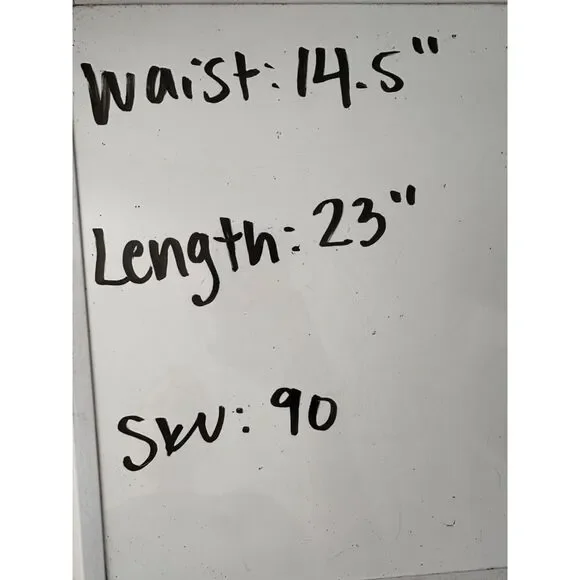 Waist: 14.5"
Length: 23"
SKU: 90